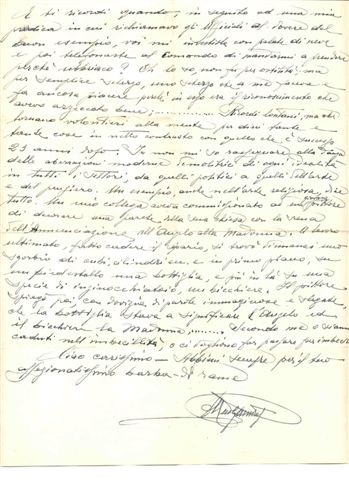 E ti ricordi quando, in seguito ad una mia
predica in cui richiamavo gli Uffi al dovere del
buon esempio, voi mi investiste con palate di neve
e poi telefonaste al Comando di mandarmi a prendere
perché ubriaco? Tu lo so, non fu per ostilità, ma
per semplice scherzo, uno scherzo che a me faceva e
fa ancora piacere perché in esso era il riconoscimento che
avevo azzeccato bene. Ricordi lontani, ma che
tornano volentieri alla mente per dirci tante e
tante cose in netto contrasto con quello che è successo
23 anni dopo. Io non mi so raggirare nella
delle aberrazioni moderne demolitrici di ogni idealità
in tutti i settori, da quelli politici a quelli dell'arte
e del pensiero. Un esempio, anche nell'arte religiosa, dice
tutto. Un mio collega aveva commissionato ad un pittore
di decorare una parete della sua chiesa con la scena
dell'Annunciazione dell'Angelo alla Madonna. A lavoro
ultimato, fatto cadere il sipario, si trovò dinnanzi uno
sgorbio di cubi, cilindri ecc. e in primo piano, su
un piedistallo una bottiglia, e più in là su una
specie di inginocchiatoio, un bicchiere. Il pittore
spiegò poi, con dovizia di parole immaginose e slegate,
che la bottiglia stava a significare l'Angelo ed
il bicchiere la Madonna. Secondo me o siamo
caduti nell'imbecillità, o ci vogliono far passare per imbecilli
Ciao carissimo - Abbimi sempre per il tuo
affezionatissimo barba di rame